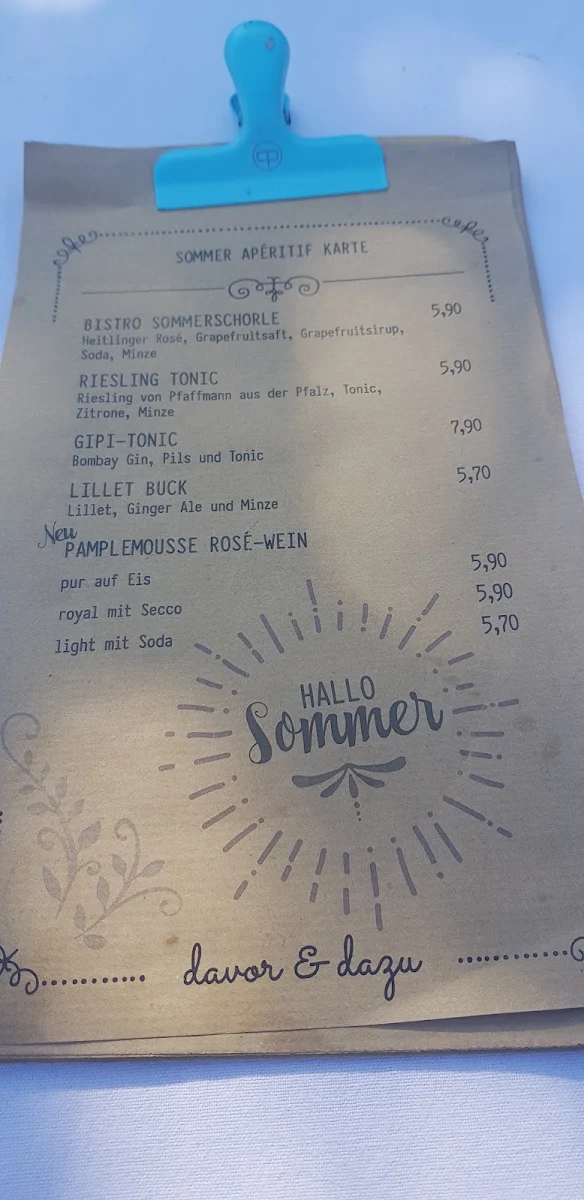 SOMMER APÉRITIF KARTE
BISTRO SOMMERSCHORLE 5,90
Heitlinger Rosé, Grapefruitsaft, Grapefruitsirup,
Soda, Minze
RIESLING TONIC 5,90
Riesling von Pfaffmann aus der Pfalz, Tonic,
Zitrone, Minze
GIPI-TONIC 7,90
Bombay Gin, Pils und Tonic
LILLET BUCK 5,70
Lillet, Ginger Ale und Minze
Neu
PAMPLEMOUSSE ROSÉ-WEIN
pur auf Eis 5,90
royal mit Secco 5,90
light mit Soda 5,70
HALLO
Sommer
davor & dazu